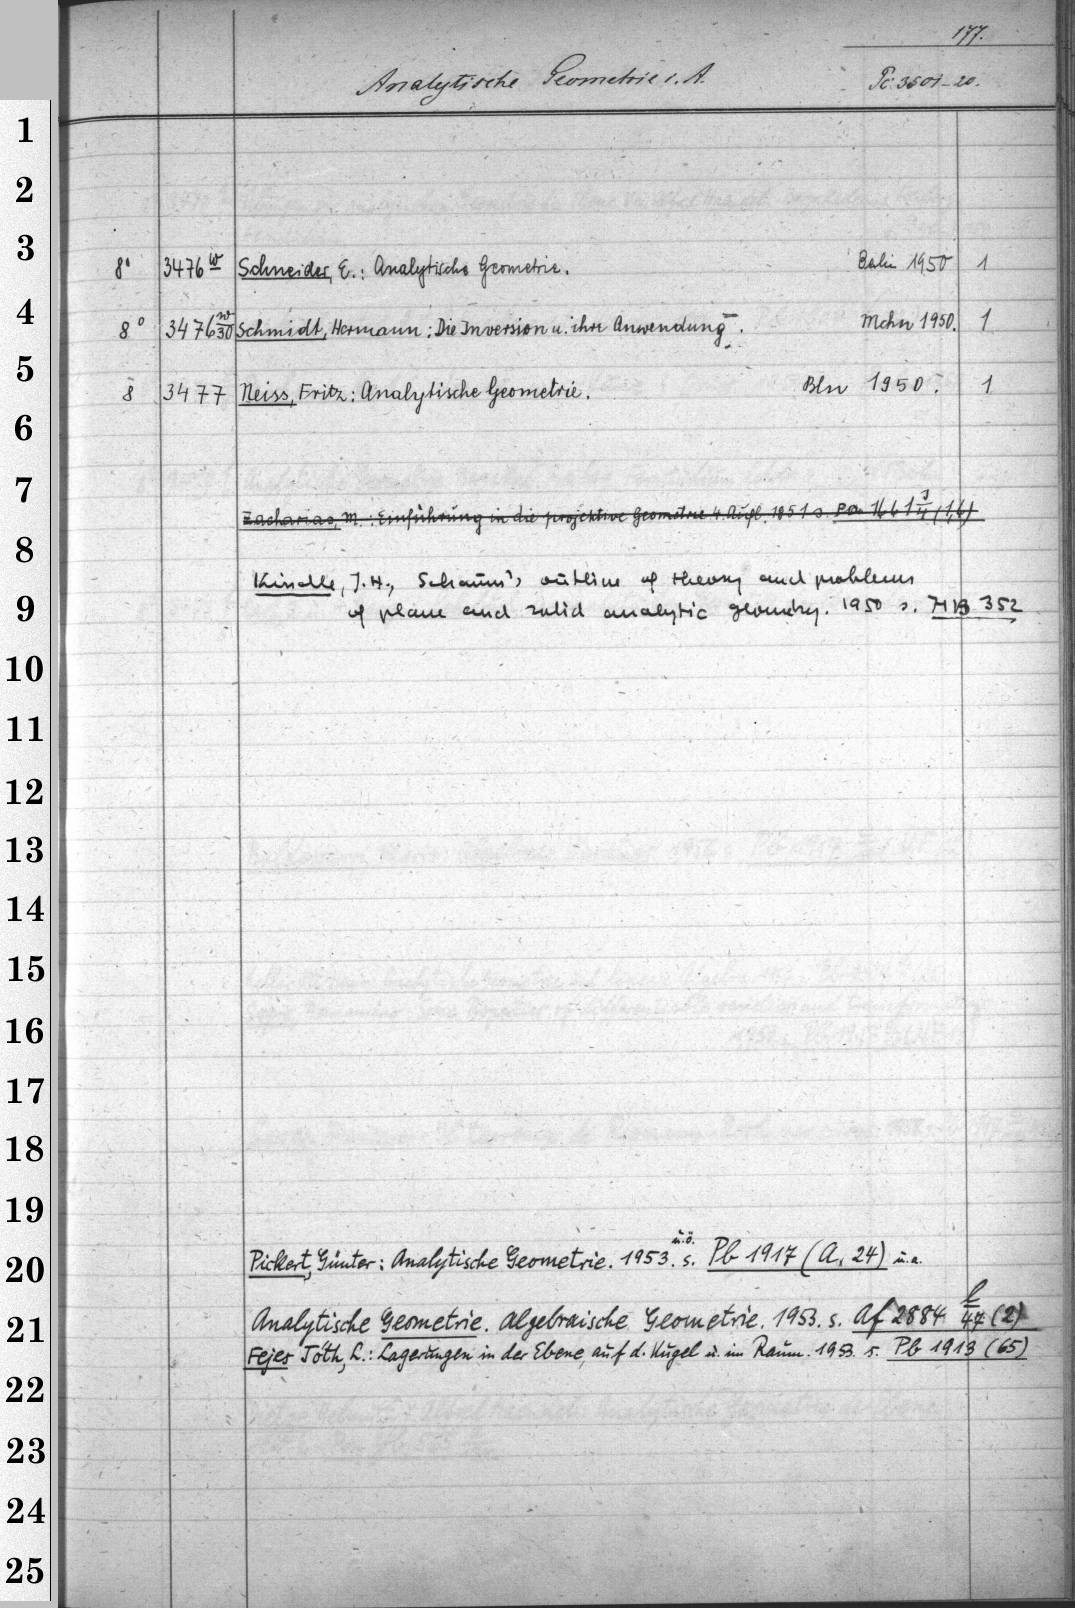 177.
Analytische Geometrie i. A. Pc 3501-20.
1
2
3
8° 3476 w Schneider, E.: Analytische Geometrie. Berlin 1950 1
4
8° 3476 w/30 Schmidt, Hermann: Die Inversion u. ihre Anwendung. Mchn 1950. 1
5
8 3477 Neiss, Fritz: Analytische Geometrie. Bln 1950. 1
6
7
Zacharias, M.: Einführung in die projektive Geometrie 4. Aufl. 1951 s. Pa 1661 (1,6)
8
Kindle, J. H., Schaum's outline of theory and problems
9
of plane and solid analytic geometry. 1950 s. 7HB 352
10
11
12
13
14
15
16
17
18
19
20
Pickert, Günter: Analytische Geometrie. 1953. u.ö. s. Pb 1917 (A, 24) u.a.
21
Analytische Geometrie. Algebraische Geometrie. 1953. s. Af 2884 l/47 (2)
Fejes Tóth, L.: Lagerungen in der Ebene, auf d. Kugel u. im Raum. 1953. s. Pb 1913 (65)
22
23
24
25